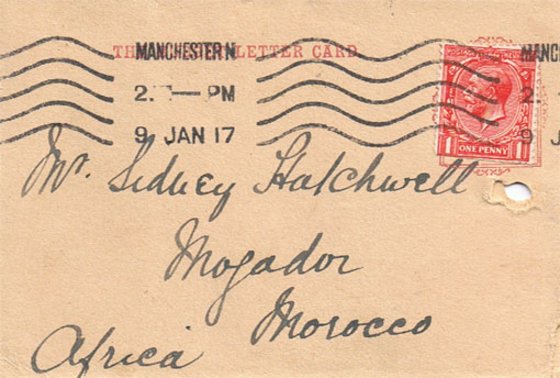 TH LETTER CARD
MANCHESTER N
2. — PM
9 JAN 17
MANC
2.
9 J
ONE PENNY
1 1
Mr. Sidney Hatchwell
Mogador
Morocco
Africa